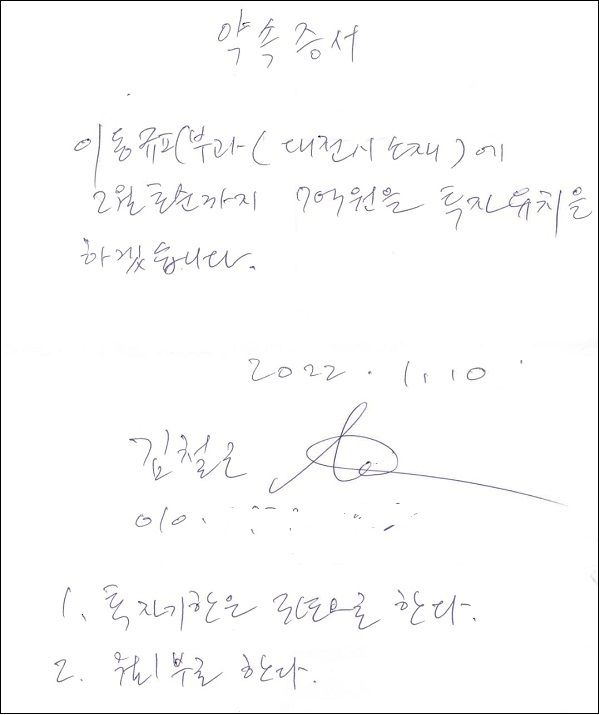 약속증서
이동규피부과(대전시 소재)에
2월 초순까지 7억원을 투자유치를
하겠습니다.
2022. 1. 10
김철근
010.
1. 투자기한은 으로 한다.
2. 한다.